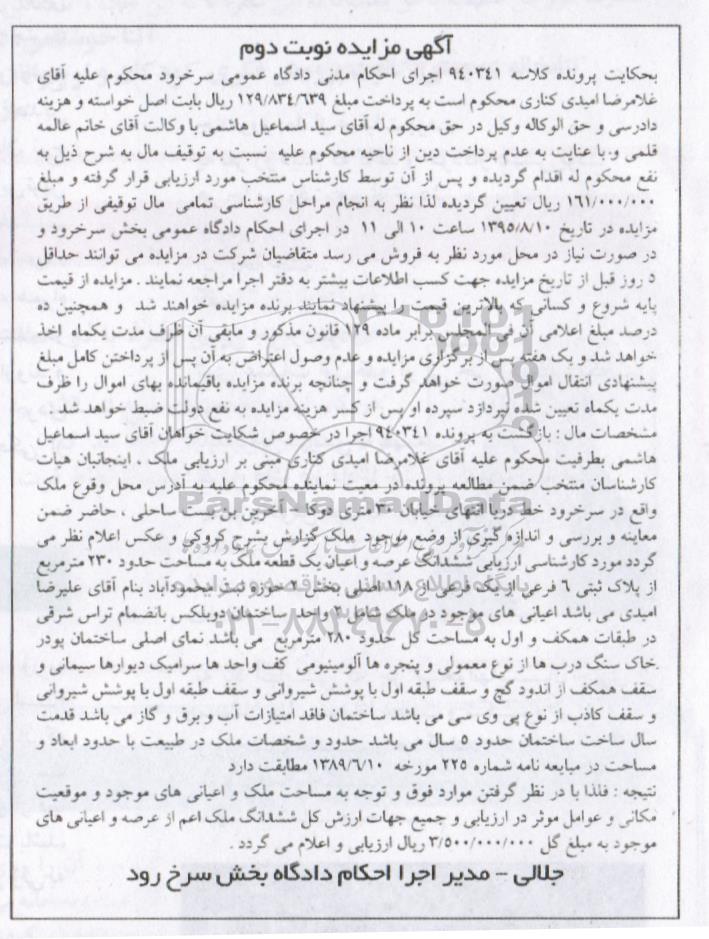 آگهی مزایده نوبت دوم
بحکایت پرونده کلاسه ۹۴۰۳۴۱ اجرای احکام مدنی دادگاه عمومی سرخرود محکوم علیه آقای
غلامرضا امیدی کناری محکوم است به پرداخت مبلغ ۱۲۹/۸۳۴/۶۳۹ ریال بابت اصل خواسته و هزینه
دادرسی و حق الوکاله وکیل در حق محکوم له آقای سید اسماعیل هاشمی با وکالت آقای خانم عالمه
قلمی و با عنایت به عدم پرداخت دین از ناحیه محکوم علیه نسبت به توقیف مال به شرح ذیل به
نفع محکوم له اقدام گردیده و پس از آن توسط کارشناس منتخب مورد ارزیابی قرار گرفته و مبلغ
۱۶۱/۰۰۰/۰۰۰ ریال تعیین گردیده لذا نظر به انجام مراحل کارشناسی تمامی مال توقیفی از طریق
مزایده در تاریخ ۱۳۹۵/۸/۱۰ ساعت ۱۰ الی ۱۱ در اجرای احکام دادگاه عمومی بخش سرخرود و
در صورت نیاز در محل مورد نظر به فروش می رسد متقاضیان شرکت در مزایده می توانند حداقل
۵ روز قبل از تاریخ مزایده جهت کسب اطلاعات بیشتر به دفتر اجرا مراجعه نمایند . مزایده از قیمت
پایه شروع و کسانی که بالاترین قیمت را پیشنهاد نمایند برنده مزایده خواهند شد و همچنین ده
درصد مبلغ اعلامی آن فی المجلس برابر ماده ۱۲۹ قانون مذکور و مابقی آن ظرف مدت یکماه اخذ
خواهد شد و یک هفته پس از برگزاری مزایده و عدم وصول اعتراض به آن پس از پرداختن کامل مبلغ
پیشنهادی انتقال اموال صورت خواهد گرفت و چنانچه برنده مزایده باقیمانده بهای اموال را ظرف
مدت یکماه تعیین شده نپردازد سپرده او پس از کسر هزینه مزایده به نفع دولت ضبط خواهد شد .
مشخصات مال : بازگشت به پرونده ۹۴۰۳۴۱ اجرا در خصوص شکایت خواهان آقای سید اسماعیل
هاشمی بطرفیت محکوم علیه آقای غلامرضا امیدی کناری مبنی بر ارزیابی ملک . اینجانبان هیات
کارشناسان منتخب ضمن مطالعه پرونده در معیت نماینده محکوم علیه به آدرس محل وقوع ملک
واقع در سرخرود خط دریا انتهای خیابان ۳۰ متری دوکا آخرین بن بست ساحلی ، حاضر ضمن
معاینه و بررسی و اندازه گیری از وضع موجود ملک گزارش بشرح کروکی و عکس اعلام نظر می
گردد مورد کارشناسی ارزیابی ششدانگ عرصه و اعیان یک قطعه ملک به مساحت حدود ۲۳۰ مترمربع
از پلاک ثبتی ۶ فرعی از یک فرعی از ۱۱۸ اصلی بخش ۲ حوزه ثبت محمودآباد بنام آقای علیرضا
امیدی می باشد اعیانی های موجود در ملک شامل واحد ساختمان دوبلکس بانضمام تراس شرقی
در طبقات همکف و اول به مساحت کل حدود ۲۸۰ مترمربع می باشد نمای اصلی ساختمان پودر
خاک سنگ درب ها از نوع معمولی و پنجره ها آلومینیومی کف واحد ها سرامیک دیوارها سیمانی و
سقف همکف از اندود گچ و سقف طبقه اول با پوشش شیروانی و سقف طبقه اول با پوشش شیروانی
و سقف کاذب از نوع پی وی سی می باشد ساختمان فاقد امتیازات آب و برق و گاز می باشد قدمت
سال ساخت ساختمان حدود ۵ سال می باشد حدود و شخصات ملک در طبیعت با حدود ابعاد و
مساحت در مبایعه نامه شماره ۲۲۵ مورخه ۱۳۸۹/۶/۱۰ مطابقت دارد
نتیجه : فلذا با در نظر گرفتن موارد فوق و توجه به مساحت ملک و اعیانی های موجود و موقعیت
مکانی و عوامل موثر در ارزیابی و جمیع جهات ارزش کل ششدانگ ملک اعم از عرصه و اعیانی های
موجود به مبلغ گل ۳/۵۰۰/۰۰۰/۰۰۰ ریال ارزیابی و اعلام می گردد .
جلالی - مدیر اجرا احکام دادگاه بخش سرخ رود
ParsNamadData
۰۲۱-۸۸۳۴۹۶۷۰-۵